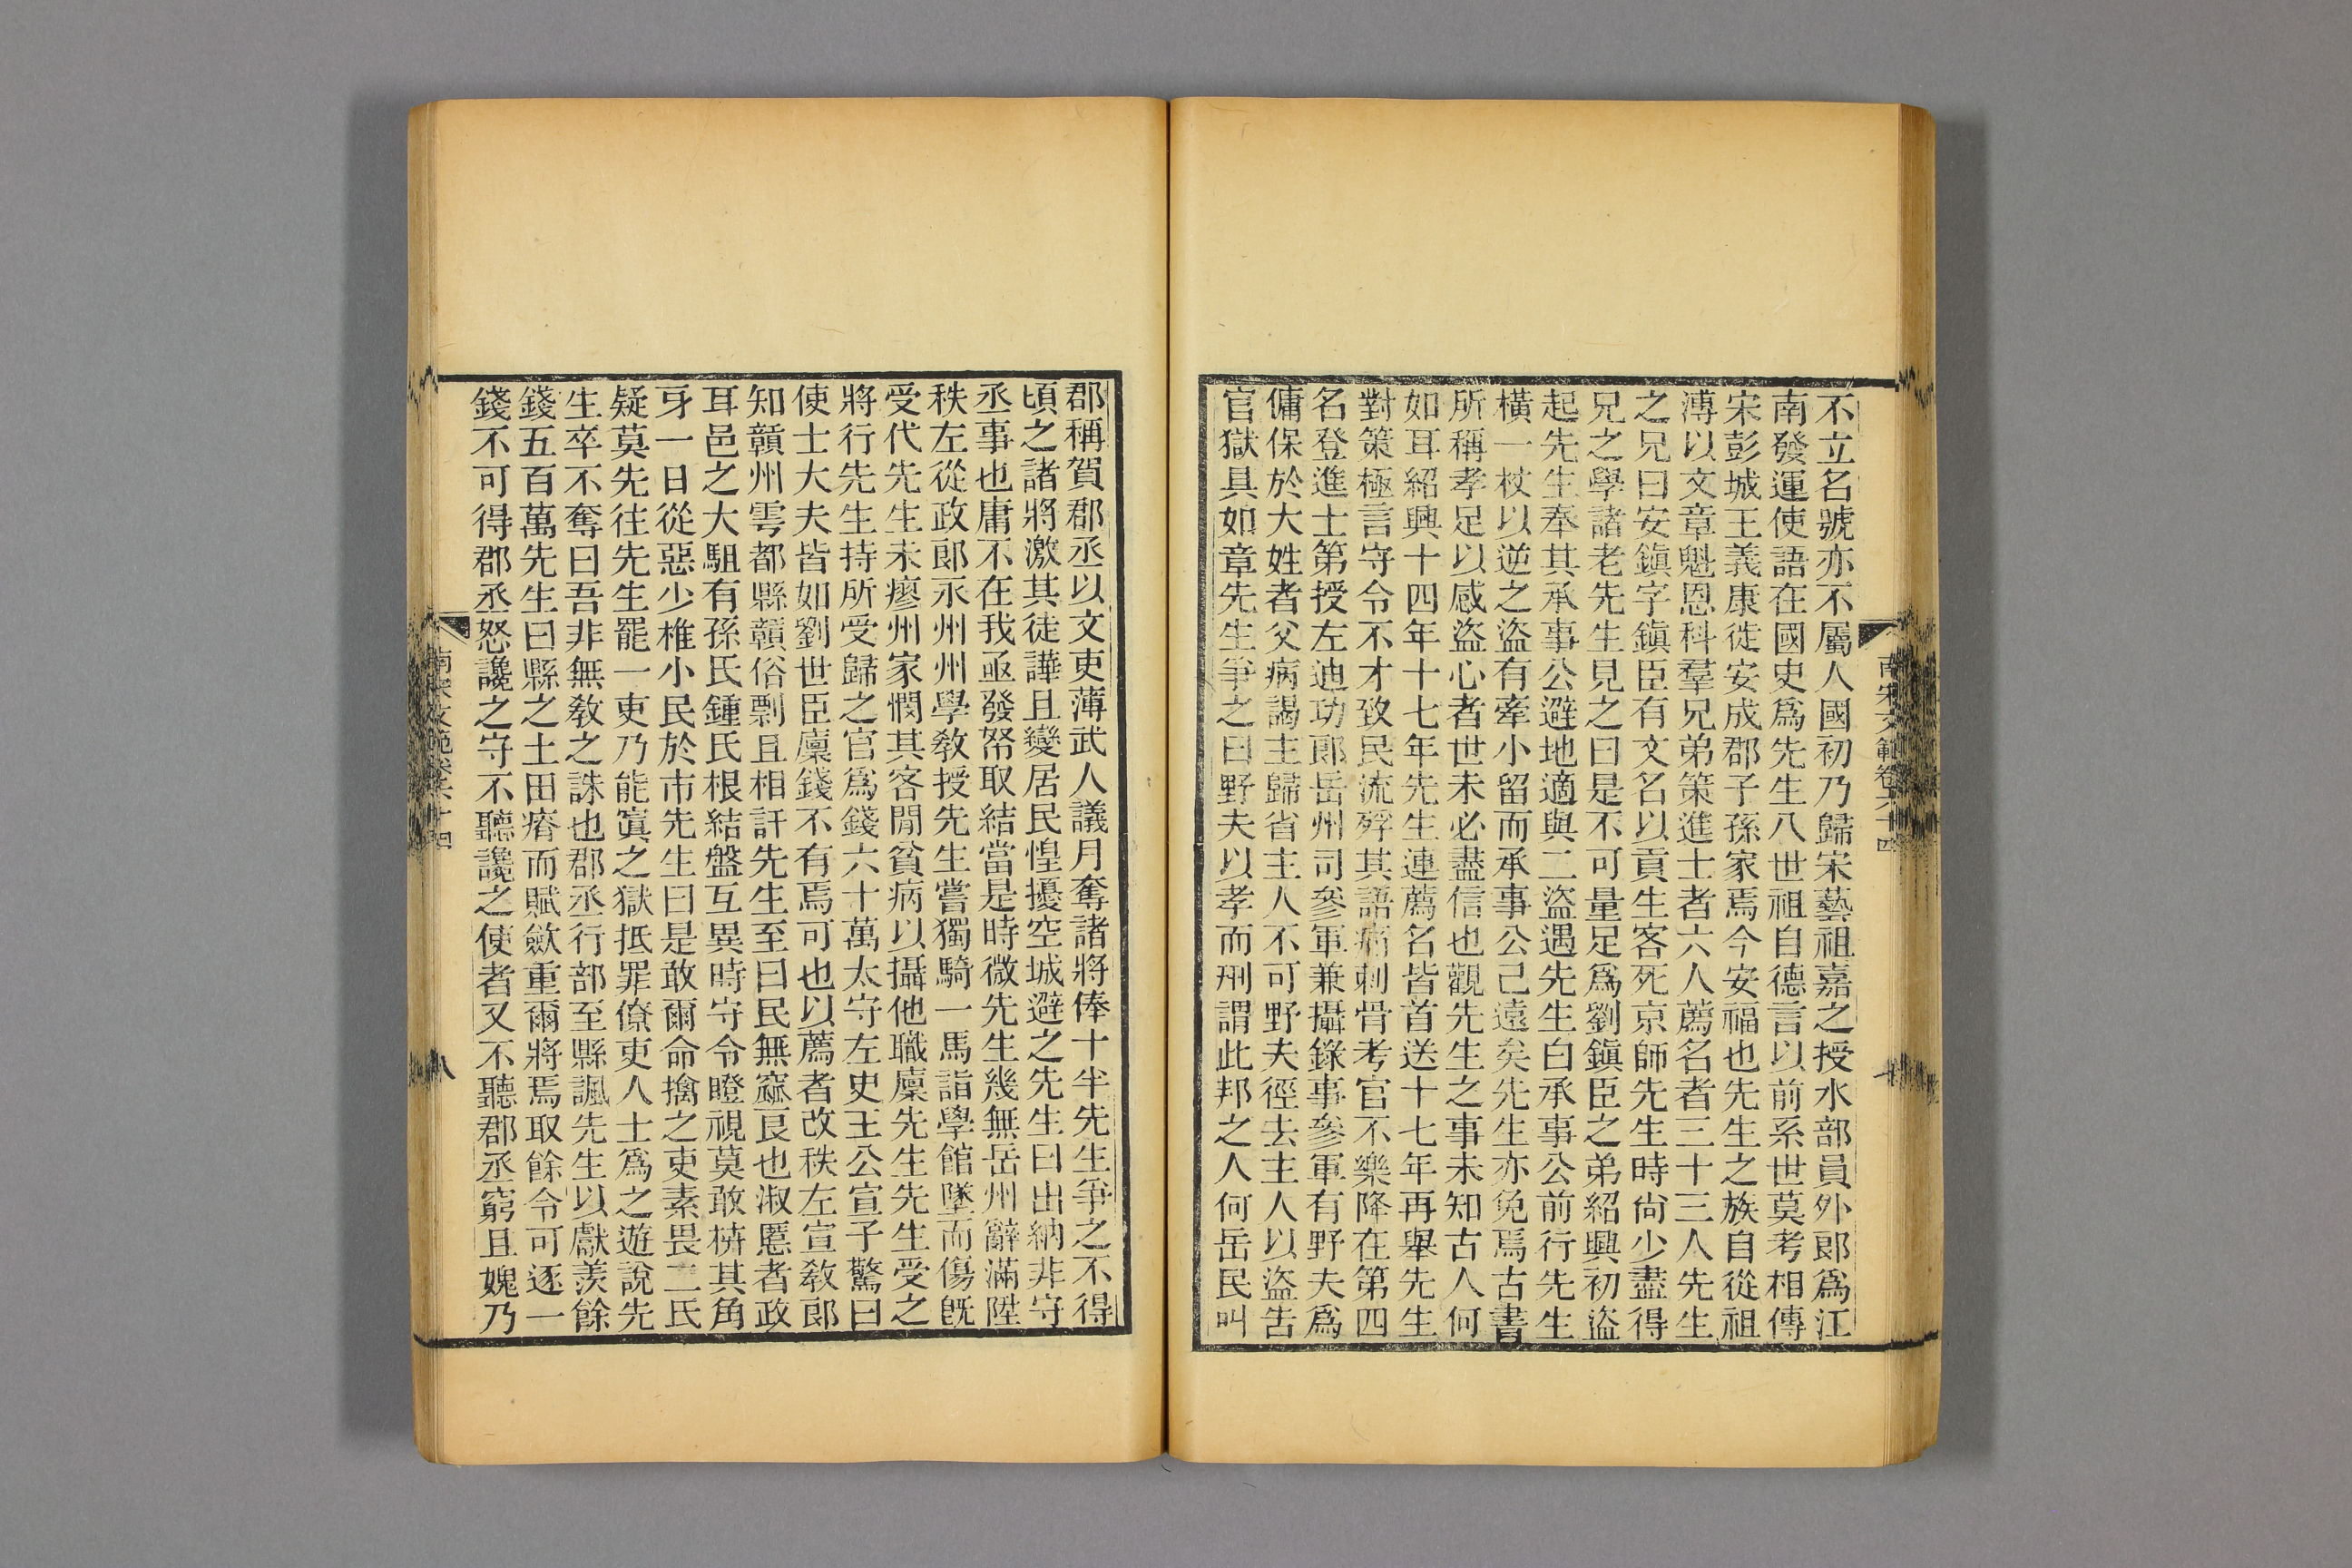 南宋文範卷六十四
不立名號亦不屬人國初乃歸宋藝祖嘉之授水部員外郎爲江
南發運使語在國史爲先生八世祖自德言以前系世莫考相傳
宋彭城王義康徙安成郡子孫家焉今安福也先生之族自從祖
溥以文章魁恩科羣兄弟策進士者六人薦名者三十三人先生
之兄曰安鎭字鎭臣有文名以貢生客死京師先生時尙少盡得
兄之學諸老先生見之曰是不可量足爲劉鎭臣之弟紹興初盜
起先生奉其承事公避地適與二盜遇先生白承事公前行先生
橫一杖以逆之盜有牽小留而承事公已遠矣先生亦免焉古書
所稱孝足以感盜心者世未必盡信也觀先生之事未知古人何
如耳紹興十四年十七年先生連薦名皆首送十七年再舉先生
對策極言守令不才致民流殍其語痛刺骨考官不樂降在第四
名登進士第授左迪功郎岳州司參軍兼攝錄事參軍有野夫爲
傭保於大姓者父病謁主歸省主人不可野夫徑去主人以盜吿
官獄具如章先生爭之曰野夫以孝而刑謂此邦之人何岳民叫
郡稱賀郡丞以文吏薄武人議月奪諸將俸十半先生爭之不得
頃之諸將激其徒譁且變居民惶擾空城避之先生曰出納非守
丞事也庸不在我亟發帑取結當是時微先生幾無岳州辭滿陞
秩左從政郎永州州學敎授先生嘗獨騎一馬詣學館墜而傷旣
受代先生未瘳州家憫其客閒貧病以攝他職廩先生先生受之
將行先生持所受歸之官爲錢六十萬太守左史王公宣子驚曰
使士大夫皆如劉世臣廩錢不有焉可也以薦者改秩左宣敎郎
知贛州雩都縣贛俗剽且相訐先生至曰民無窳良也淑慝者政
耳邑之大駔有孫氏鍾氏根結盤互異時守令瞪視莫敢掎其角
牙一日從惡少椎小民於市先生曰是敢爾命擒之吏素畏二氏
疑莫先往先生罷一吏乃能寘之獄抵罪僚吏人士爲之遊說先
生卒不奪曰吾非無敎之誅也郡丞行部至縣諷先生以獻羨餘
錢五百萬先生曰縣之土田瘠而賦斂重爾將焉取餘令可逐一
錢不可得郡丞怒讒之守不聽讒之使者又不聽郡丞窮且媿乃
南宋文範卷六十四
八